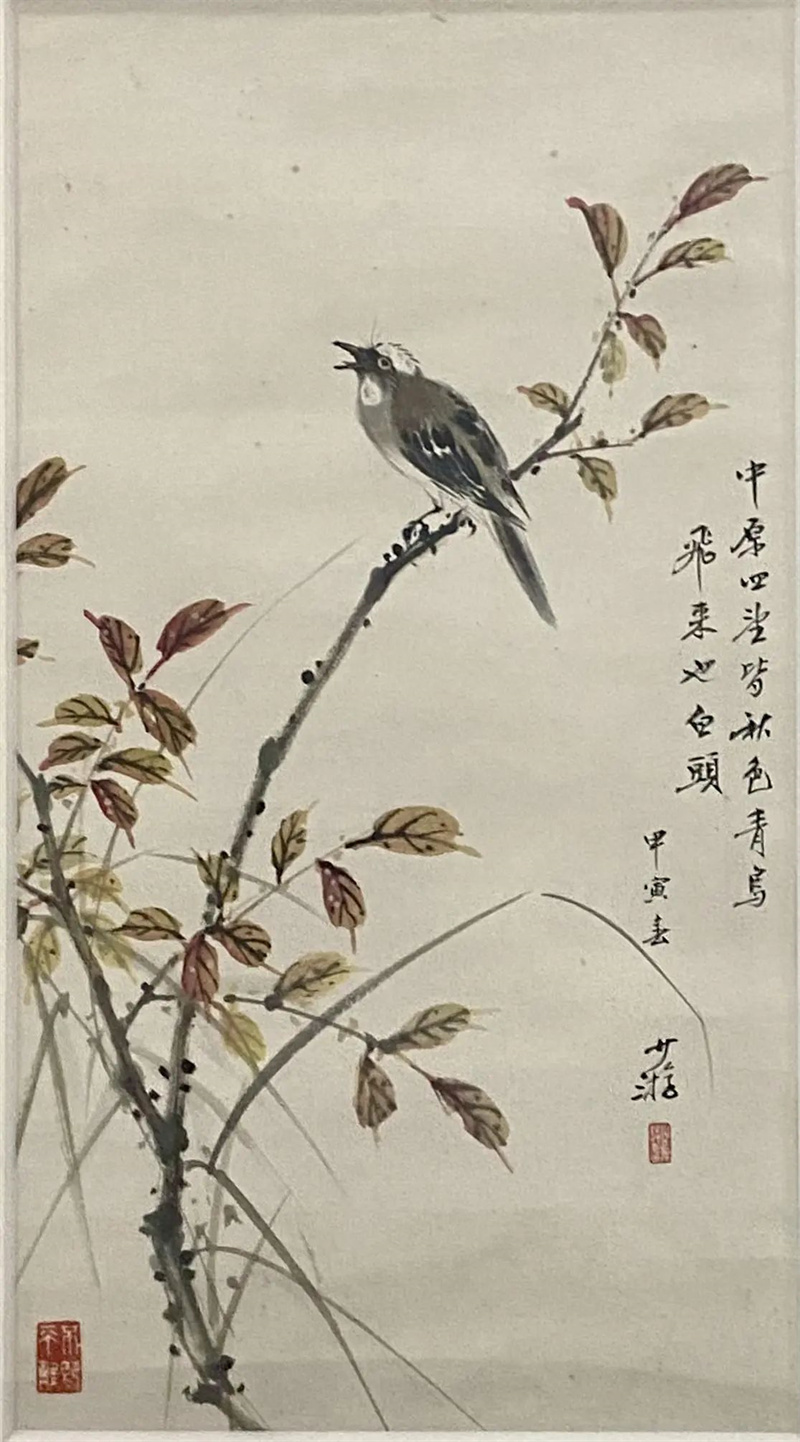 中原四望皆秋色青鸟
飛来也白頭
甲寅春
少游